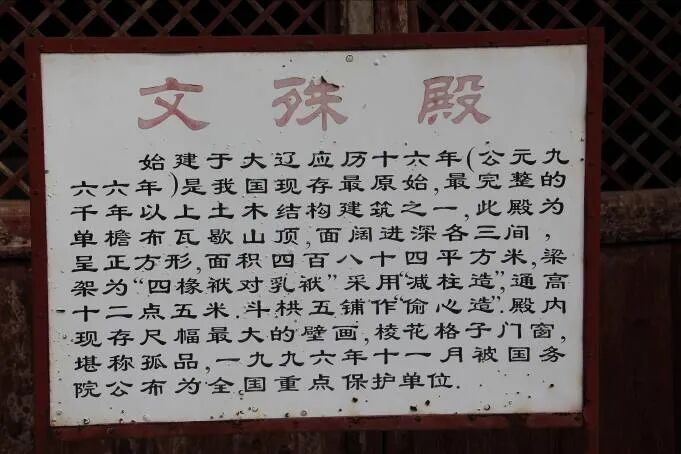 文殊殿
始建于大辽应历十六年(公元九
六六年)是我国现存最原始,最完整的
千年以上土木结构建筑之一,此殿为
单檐布瓦歇山顶,面阔进深各三间,
呈正方形,面积四百八十四平方米,梁
架为“四椽袱对乳袱”采用“减柱造”,通高
十二点五米.斗栱五铺作“偷心造”.殿内
现存尺幅最大的壁画,棱花格子门窗,
堪称孤品,一九九六年十一月被国务
院公布为全国重点保护单位.